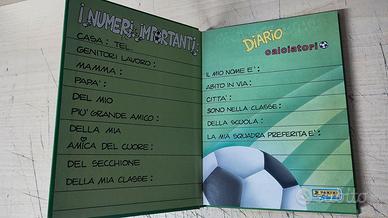 I NUMERI IMPORTANTI:
CASA: TEL.
GENITORI LAVORO:
MAMMA:
PAPA':
DEL MIO
PIU' GRANDE AMICO:
DELLA MIA
AMICA DEL CUORE:
DEL SECCHIONE
DELLA MIA CLASSE:
DIARIO
calciatori
IL MIO NOME E':
ABITO IN VIA:
CITTA':
SONO NELLA CLASSE:
DELLA SCUOLA:
LA MIA SQUADRA PREFERITA E':
PANINI